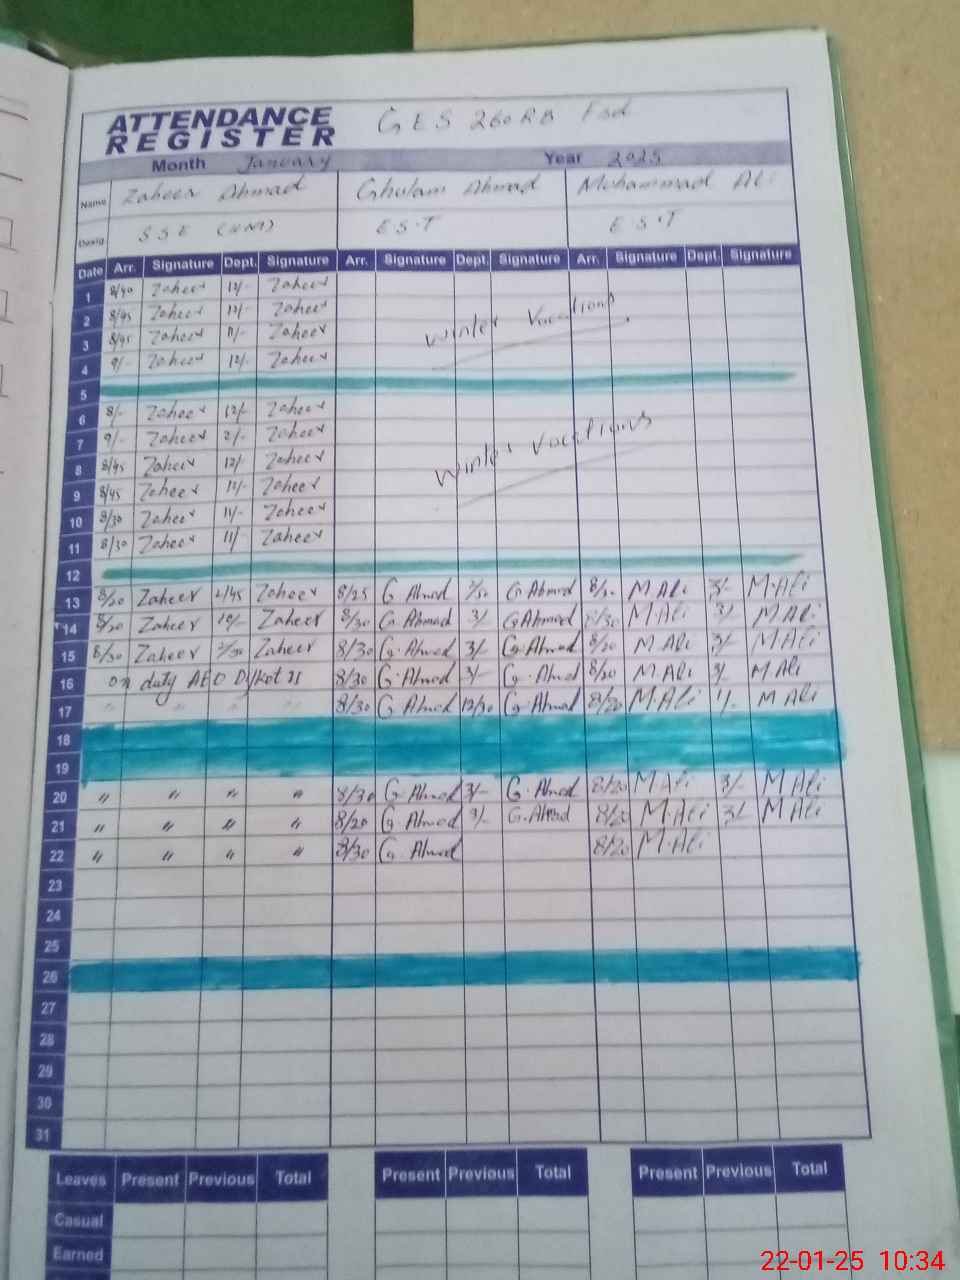 ATTENDANCE
REGISTER
GES 260RB Fsd
Month January Year 2025
Name Zaheer Ahmad Ghulam Ahmad Muhammad Ali
Desig. SSE E S.T E S.T
Date Arr. Signature Dept. Signature Arr. Signature Dept. Signature Arr. Signature Dept. Signature
1 8/40 Zaheer 12/- Zaheer
2 8/45 Zaheer 12/- Zaheer Winter Vacations
3 8/45 Zaheer 11/- Zaheer
4 9/- Zaheer 12/- Zaheer
5
6 8/- Zaheer 12/- Zaheer
7 9/- Zaheer 2/- Zaheer Winter Vacations
8 8/45 Zaheer 12/- Zaheer
9 8/45 Zaheer 12/- Zaheer
10 8/30 Zaheer 11/- Zaheer
11 8/30 Zaheer 11/- Zaheer
12
13 8/20 Zaheer 2/45 Zaheer 8/25 G Ahmad G Ahmad M Ali 3/- M.Ali
14 8/20 Zaheer Zaheer 8/30 G Ahmad 3/- G Ahmad M Ali 3/- M Ali
15 8/30 Zaheer Zaheer 8/30 G. Ahmad 3/- G. Ahmad 8/20 M Ali 3/- M Ali
16 on duty AEO 8/30 G. Ahmad 3/- G. Ahmad 8/20 M Ali 3/- M Ali
17 " " " " 8/30 G. Ahmad 12/30 G. Ahmad 8/20 M.Ali 1/- M Ali
18
19
20 " " " " 8/30 G. Ahmad 3/- G. Ahmad 8/20 M Ali 3/- M Ali
21 " " " " 8/20 G. Ahmad 3/- G. Ahmad 8/20 M.Ali 3/- M Ali
22 " " " " 8/30 G. Ahmad 8/20 M.Ali
23
24
25
26
27
28
29
30
31
Leaves Present Previous Total Present Previous Total Present Previous Total
Casual
Earned
22-01-25 10:34